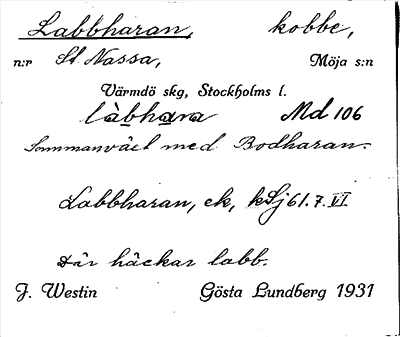 Labbharan, kobbe,
n:r St. Nassa, Möja s:n
Värmdö skg, Stockholms l.
làbhara Md 106
Sammanväxt med Bodharan.
Labbharan, ek, kSj 61.7.VI
Där häckar labb.
J. Westin Gösta Lundberg 1931